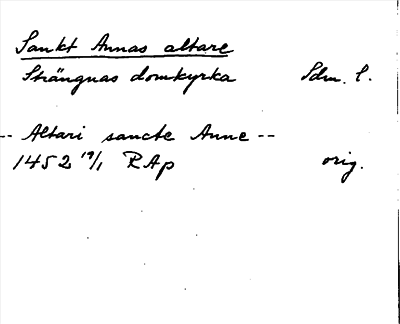 Sankt Annas altare
Strängnäs domkyrka Sdm. l.
-- Altari sancte Anne --
1452 19/1 RAp orig.